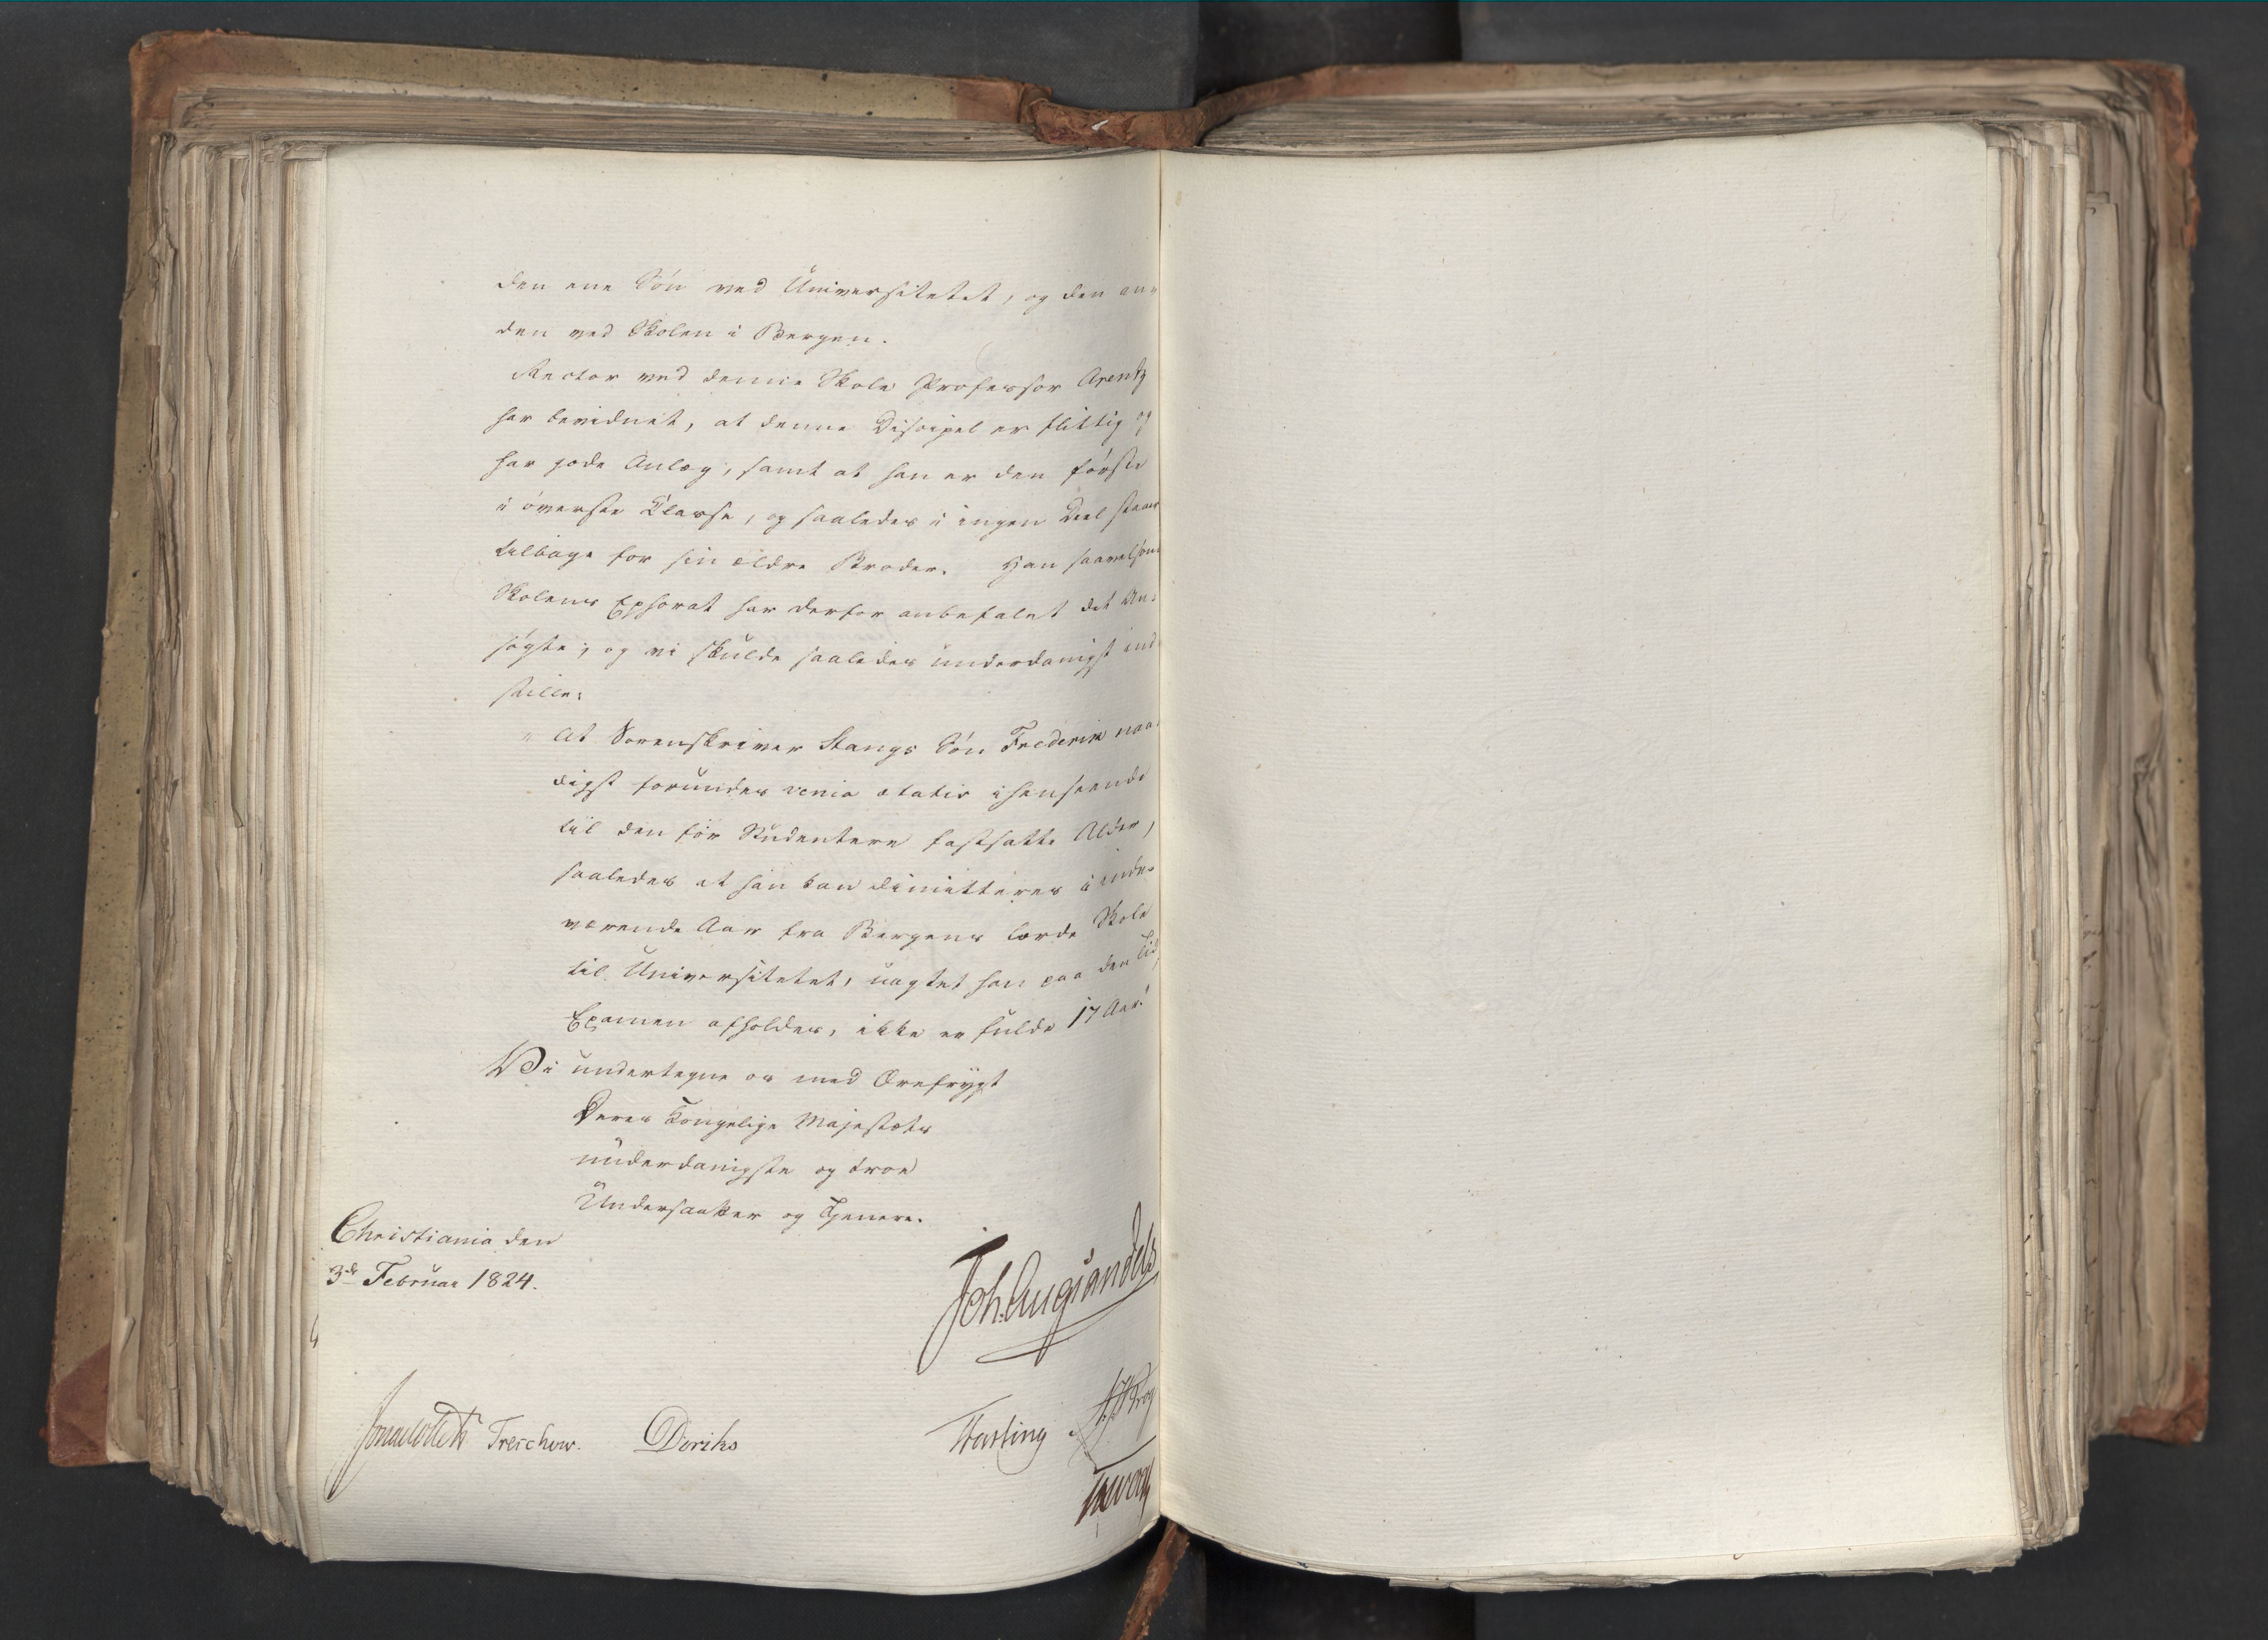 den ene Søn ved Universitetet, og den an-
den ved Skolen i Bergen.
Rector ved denne Skole Professor Arentz
har bevidnet, at denne Discipel er flittig og
har gode Anlæg, samt at han er den første
i øverste Classe, og saaledes i ingen Deel staaer
tilbage for sin ældre Broder. Han saavelsom
Skolens Ephorat har derfor anbefalet det An-
søgte; og vi skulde saaledes underdanigst ind-
stille:
" At Sorenskriver Stangs Søn Frederik naa-
digst forundes venia ætatis i henseende
til den for Studentere fastsatte Alder,
saaledes at han kan dimitteres i inde-
værende Aar fra Bergens lærde Skole
til Universitetet, uagtet han paa den Tid,
Examen afholdes, ikke er fulde 17 Aar."
Vi undertegne os med Ærefrygt
Deres Kongelige Majestæts
underdanigste og troe
Undersaatter og Tjenere.
Christiania den
3de Februar 1824.
Joh. Aug Sandels
Jonas Collett Treschow. Diriks Fasting Krog